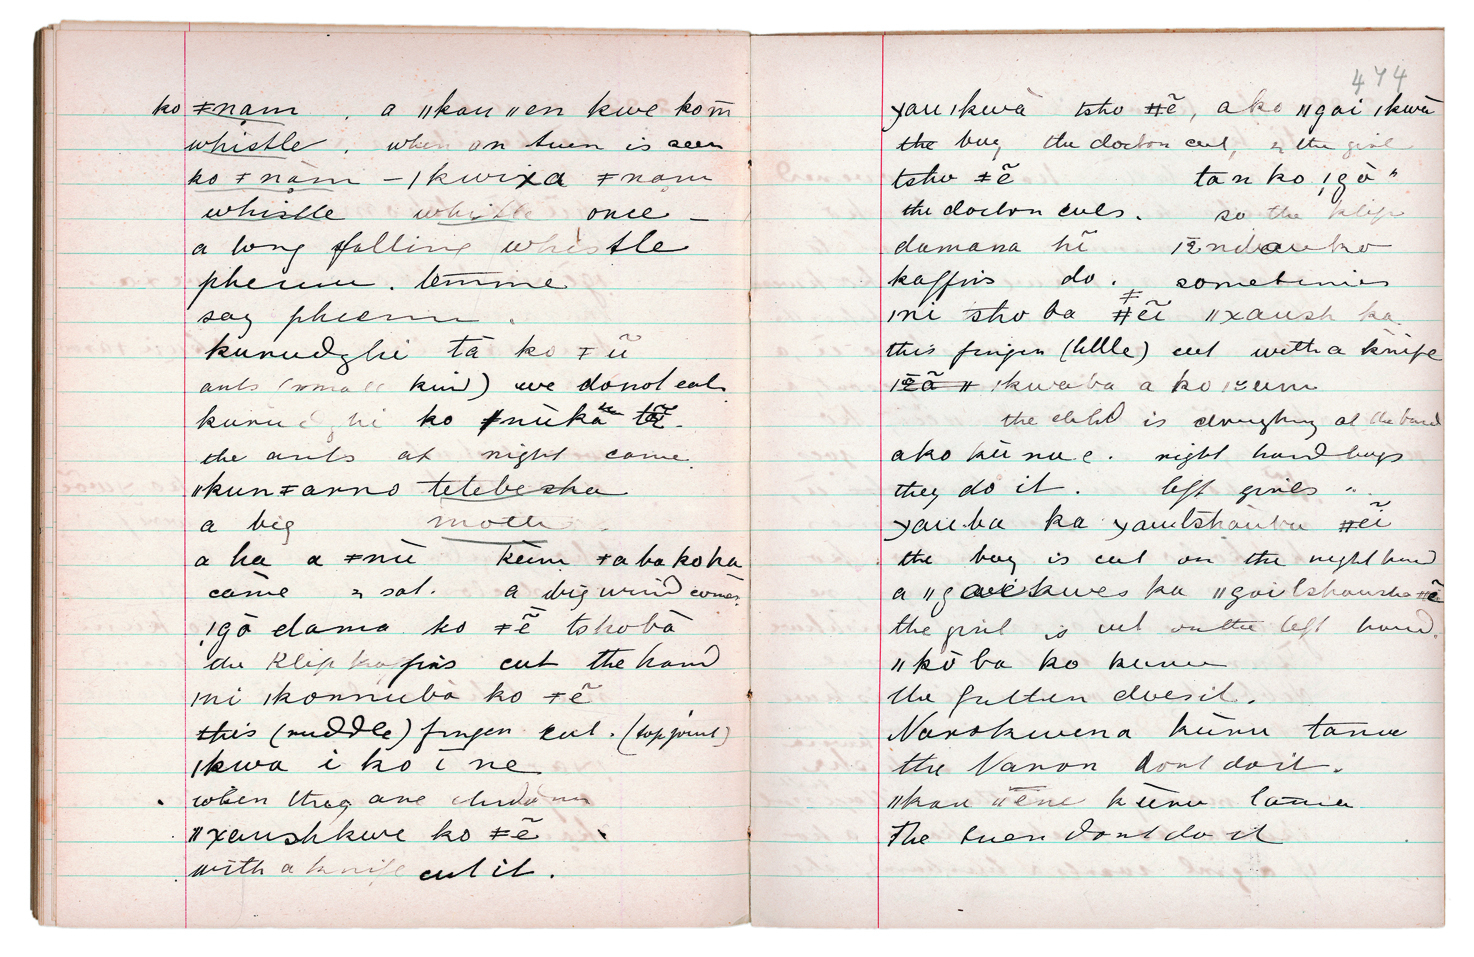 ko ǂnam . a ǁkau ǁen kwe kom̄
whistle . when an tuen is seen
ko ǂnam – ǀkwixa ǂnam
whistle whistle once –
a long falling whistle
pheuuu . tēmme
say pheuuu .
kurudghi tā ko ǂũ
ants (small kind) we do not eat
kurudghi ko ǂnūka
the ants at night come.
ǁkunǂarno telebesha
a big moth .
a ha a ǂnū kēm ǂaba ko ha
came & sat. a big wind comes
ǃgō dama ko ǂẽ tshobā
the Klip kaffirs cut the hand
ǀni ǀkonnuba ko ǂẽ
this (middle) finger cut. (top joint)
ǀkwa i ko ī ne
when they are children
ǁxaushkwe ko ǂẽ
with a knife cut it .
474
xau ǀkwà tsho ǂẽ, a ko ǁgai ǀkwà
the boy the doctor cut, & the girl
tsho ǂẽ tan ko ǃgō "
the doctor cuts . so the klip
damana hĩ
kaffirs do . sometimes
ǀni tsho ba ǂẽĩ ǁxaush ka
this finger (little) cut with a knife
ǀkwaba a ko
the child is draughing at the hand
a ko kūru e . right hand boys
they do it . left girls "
xau.ba ka xautshauba ǂẽĩ
the boy is cut on the right hand
a ǁgaikwes ka ǁgaitshausha ǂẽ
the girl is cut on the left hand.
ǁkō ba ko kuru
the father does it.
Narokwena kūru tane
the Naron dont do it .
ǁkau ǁēne kūru tana
The tuen dont do it